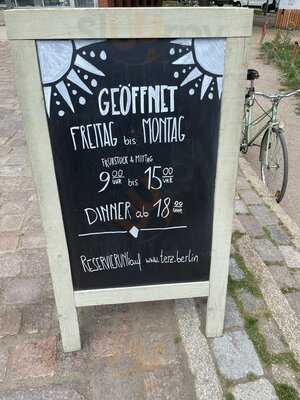 GEÖFFNET
FREITAG bis MONTAG
FRÜHSTÜCK & MITTAG
9 00 UHR bis 15 00 UHR
DINNER ab 18 00 UHR
RESERVIERUNG auf www.terz.berlin